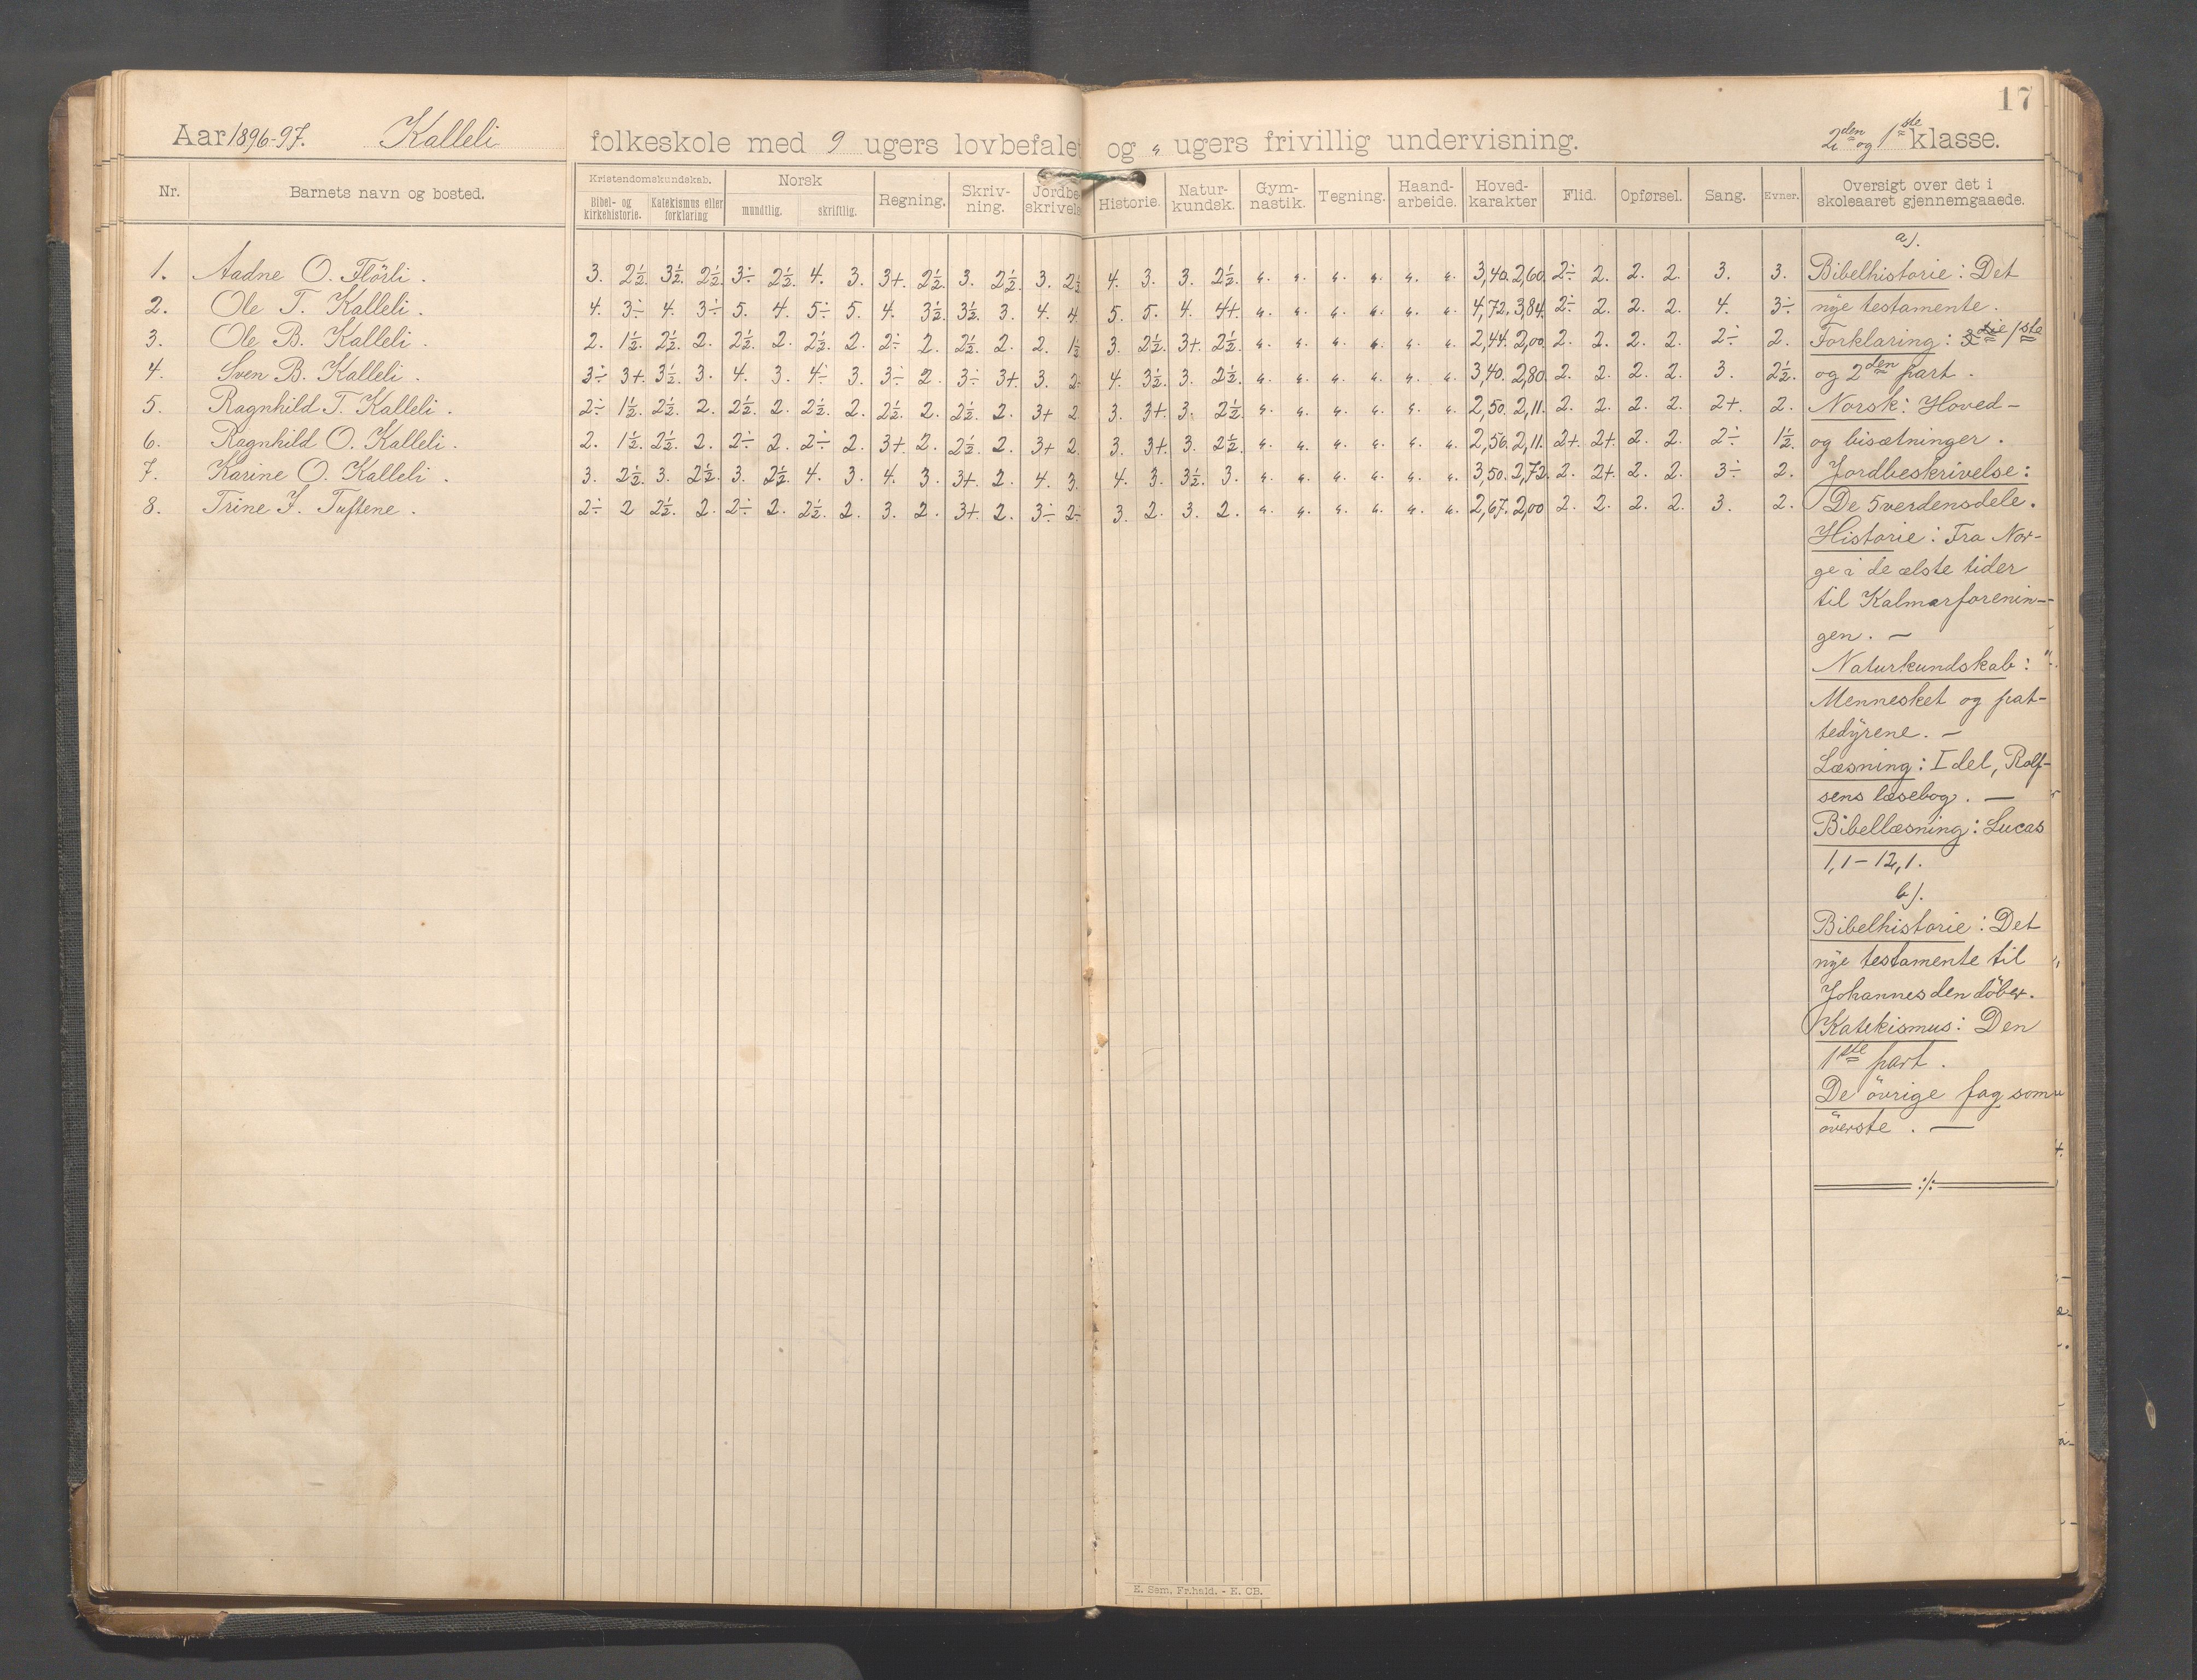 17
Aar 1896-97. Kalleli folkeskole med 9 ugers lovbefalet og " ugers frivillig undervisning. 2den og 1ste klasse.
Nr. Barnets navn og bosted. Kristendomskundskab. Bibel- og kirkehistorie. Katekismus eller forklaring Norsk mundtlig. skriftlig. Regning. Skriv-ning. Jordbe-skrivels Historie. Natur-kundsk. Gym-nastik. Tegning. Haand-arbeide. Hoved-karakter Flid. Opførsel. Sang. Evner. Oversigt over det i skoleaaret gjennemgaaede.
1. Aadne O. Flörli. 3. 2½ 3½ 2½ 3÷ 2½ 4. 3. 3+. 2½ 3. 2½ 3. 2½ 4. 3. 3. 2½. " " " " " " 3,40. 2,60. 2÷ 2. 2. 2. 3. 3.
2. Ole T. Kalleli. 4. 3÷ 4. 3÷ 5. 4. 5÷ 5. 4. 3½ 3½. 3. 4. 4 5. 5. 4. 4+. " " " " " " 4,72. 3,84. 2÷ 2. 2. 2. 4. 3÷
3. Ole B. Kalleli. 2. 1½. 2½. 2. 2½. 2. 2½. 2. 2÷ 2. 2½. 2. 2. 1½ 3. 2½. 3+. 2½. " " " " " " 2,44. 2,00. 2. 2. 2. 2. 2÷ 2.
4. Sven B. Kalleli. 3÷ 3+. 3½. 3. 4. 3. 4÷ 3. 3÷ 2. 3÷ 3+. 3. 2÷ 4. 3½. 3. 2½. " " " " " " 3,40. 2,80. 2. 2. 2. 2. 3. 2½.
5. Ragnhild T. Kalleli. 2÷ 1½. 2½. 2. 2½. 2. 2½. 2. 2½. 2. 2½. 2. 3+ 2 3. 3+. 3. 2½ " " " " " " 2,50. 2,11. 2. 2. 2. 2. 2+. 2.
6. Ragnhild O. Kalleli. 2. 1½. 2½. 2. 2÷ 2. 2÷ 2. 3+. 2. 2½. 2. 3+ 2. 3. 3+. 3. 2½ " " " " " " 2,56. 2,11. 2+. 2+. 2. 2. 2÷ 1½.
7. Karine O. Kalleli. 3. 2½. 3. 2½. 3. 2½. 4. 3. 4. 3. 3+. 2. 4. 3. 4. 3. 3½. 3. " " " " " " 3,50. 2,72. 2. 2+. 2. 2. 3÷ 2.
8. Trine J. Tuftene. 2÷ 2 2½. 2. 2÷ 2. 2½. 2. 3. 2. 3+ 2. 3÷ 2÷ 3. 2. 3. 2. " " " " " " 2,67. 2,00 2. 2. 2. 2. 3. 2.
a).
Bibelhistorie: Det
nye testamente.
Forklaring: 3die 1ste
og 2den part.
Norsk: Hoved-
og bisætninger.
Jordbeskrivelse:
De 5 verdensdele.
Historie: Fra Nor-
ge i de ælste tider
til Kalmarforenin-
gen. —
Naturkundskab:
Mennesket og pat-
tedyrene. —
Læsning: I del, Rolf-
sens læsebog. —
Bibellæsning: Lucas
1,1 - 12,1.
b).
Bibelhistorie: Det
nye testamente til
Johannes den döber.
Katekismus: Den
1ste part.
De övrige fag som
överste. —
:/:
E. Sem, Fr.hald. - E. CB.